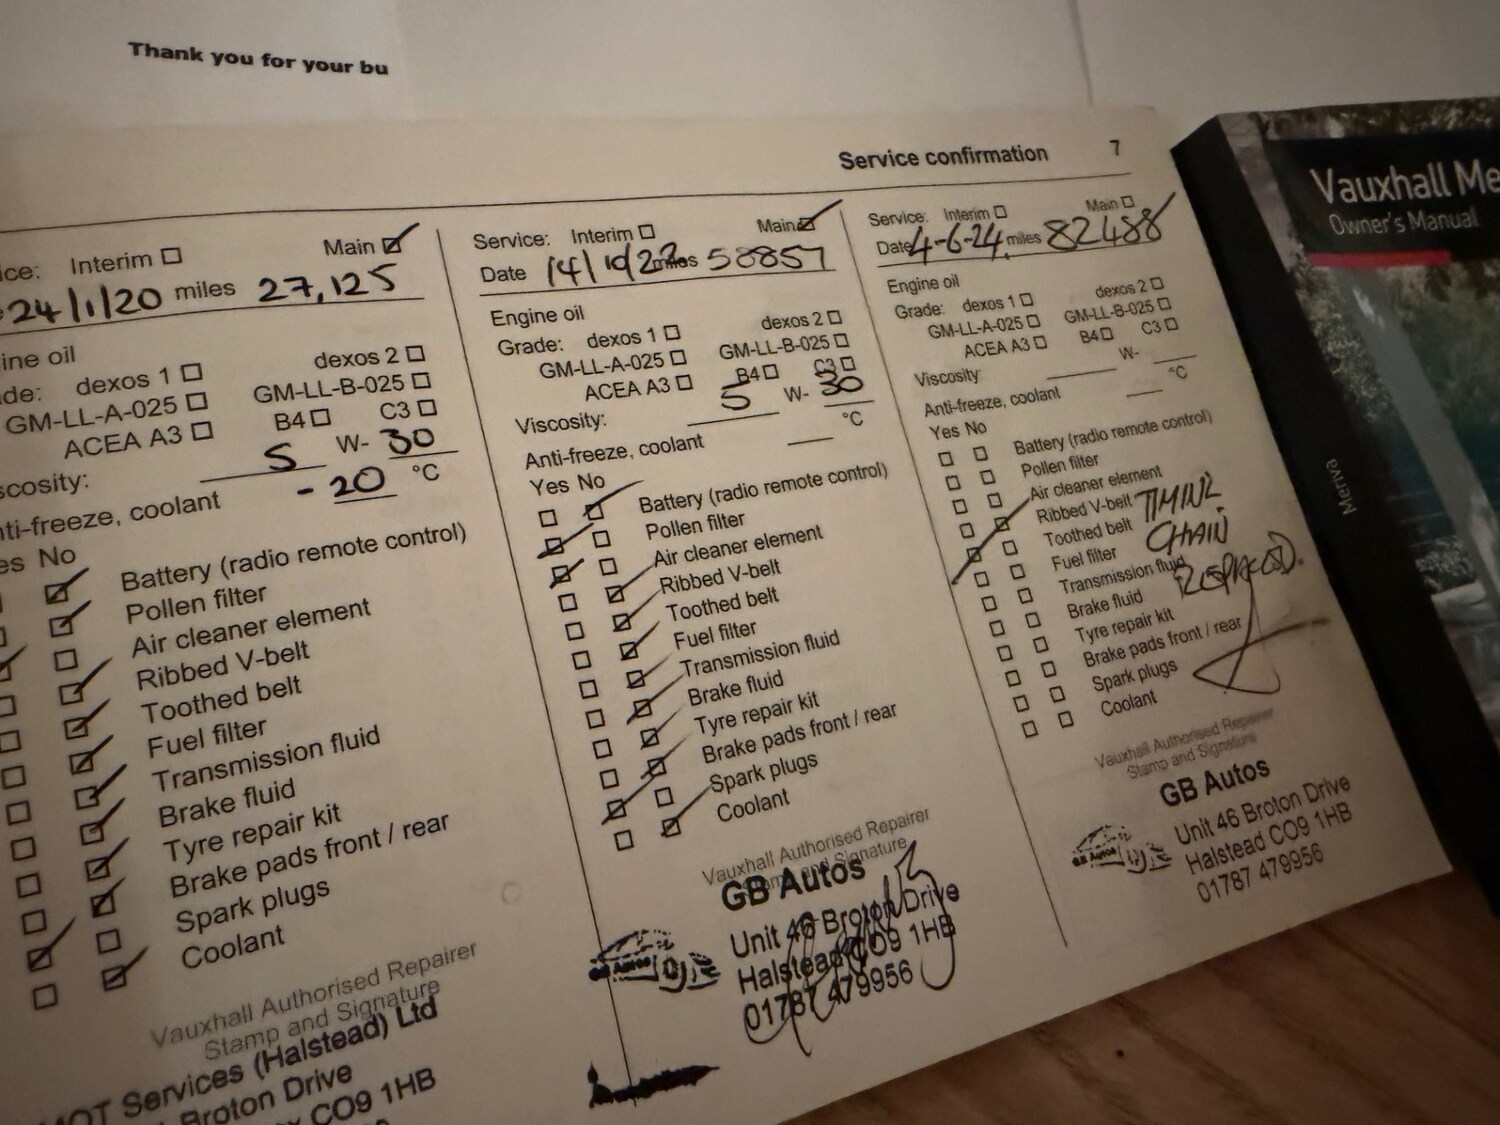 Thank you for your bu
Service confirmation 7
ice: Interim Main
24/1/20 miles 27,125
ine oil
de: dexos 1 dexos 2
GM-LL-A-025 GM-LL-B-025
ACEA A3 B4 C3
scosity: 5 W- 30
nti-freeze, coolant - 20 °C
es No
Battery (radio remote control)
Pollen filter
Air cleaner element
Ribbed V-belt
Toothed belt
Fuel filter
Transmission fluid
Brake fluid
Tyre repair kit
Brake pads front / rear
Spark plugs
Coolant
Vauxhall Authorised Repairer
Stamp and Signature
MOT Services (Halstead) Ltd
Broton Drive
CO9 1HB
Service: Interim Main
Date 14/10/22 miles 58857
Engine oil
Grade: dexos 1 dexos 2
GM-LL-A-025 GM-LL-B-025
ACEA A3 B4 C3
Viscosity: 5 W- 30
Anti-freeze, coolant °C
Yes No
Battery (radio remote control)
Pollen filter
Air cleaner element
Ribbed V-belt
Toothed belt
Fuel filter
Transmission fluid
Brake fluid
Tyre repair kit
Brake pads front / rear
Spark plugs
Coolant
Vauxhall Authorised Repairer
Stamp and Signature
GB Autos
Unit 46 Broton Drive
Halstead CO9 1HB
01787 479956
GB Autos
Service: Interim Main
Date 4-6-24. miles 82488
Engine oil
Grade: dexos 1 dexos 2
GM-LL-A-025 GM-LL-B-025
ACEA A3 B4 C3
Viscosity: W-
Anti-freeze, coolant °C
Yes No
Battery (radio remote control)
Pollen filter
Air cleaner element
Ribbed V-belt
Toothed belt
Fuel filter
Transmission fluid
Brake fluid
Tyre repair kit
Brake pads front / rear
Spark plugs
Coolant
TIMING
CHAIN
REPLACED.
Vauxhall Authorised Repairer
Stamp and Signature
GB Autos
Unit 46 Broton Drive
Halstead CO9 1HB
01787 479956
GB Autos
Vauxhall Me
Owner's Manual
Meriva